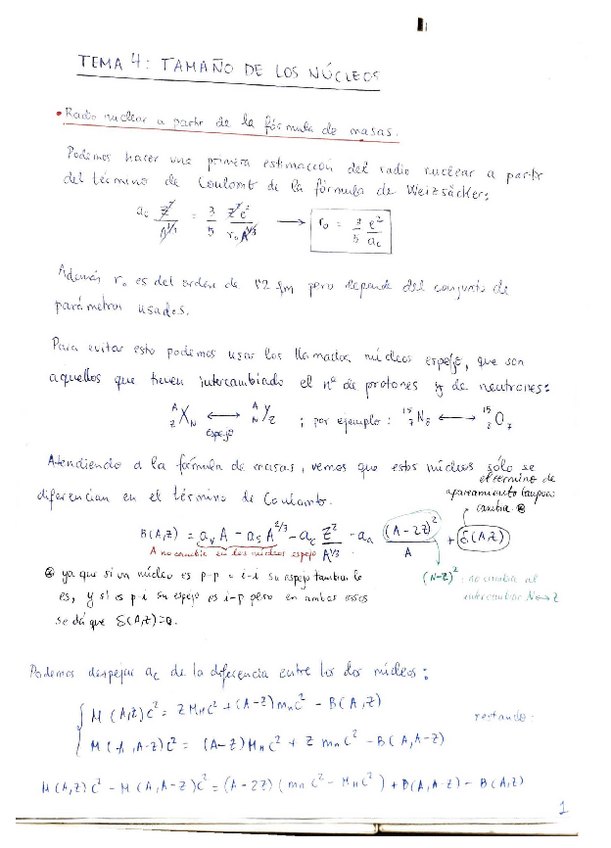 TEMA 4: TAMAÑO DE LOS NÚCLEOS
• Radio nuclear a partir de la fórmula de masas.
Podemos hacer una primera estimación del radio nuclear a partir
del término de Coulomb de la fórmula de Weizsäcker:
a_c Z²/A^1/3 = 3/5 Z²e²/r₀A^1/3 ⟶ r₀ = 3/5 e²/a_c
Además r₀ es del orden de 1'2 fm pero depende del conjunto de
parámetros usados.
Para evitar esto podemos usar los llamados núcleos espejo, que son
aquellos que tienen intercambiado el nº de protones y de neutrones:
ᴬ_Z X_N ⟷ ᴬ_N Y_Z ; por ejemplo: ¹⁵₇N₈ ⟷ ¹⁵₈O₇
espejo
Atendiendo a la fórmula de masas, vemos que estos núcleos sólo se
diferencian en el término de Coulomb.
el término de
apareamiento tampoco
cambia ⊗
B(A,Z) = a_v A - a_s A^2/3 - a_c Z²/A^1/3 - a_a (A-2Z)²/A + δ(A,Z)
A no cambia en los núcleos espejo
(N-Z)²: no cambia al
intercambiar N⟷Z
⊗ ya que si un núcleo es p-p = i-i su espejo también lo
es, y si es p-i su espejo es i-p pero en ambos casos
se da que δ(A,Z)=0.
Podemos despejar a_c de la diferencia entre los dos núcleos:
M(A,Z)c² = Z M_H c² + (A-Z) m_n c² - B(A,Z)
restando:
M(A,A-Z)c² = (A-Z) M_H c² + Z m_n c² - B(A,A-Z)
M(A,Z)c² - M(A,A-Z)c² = (A-2Z)(m_n c² - M_H c²) + B(A,A-Z) - B(A,Z)
1